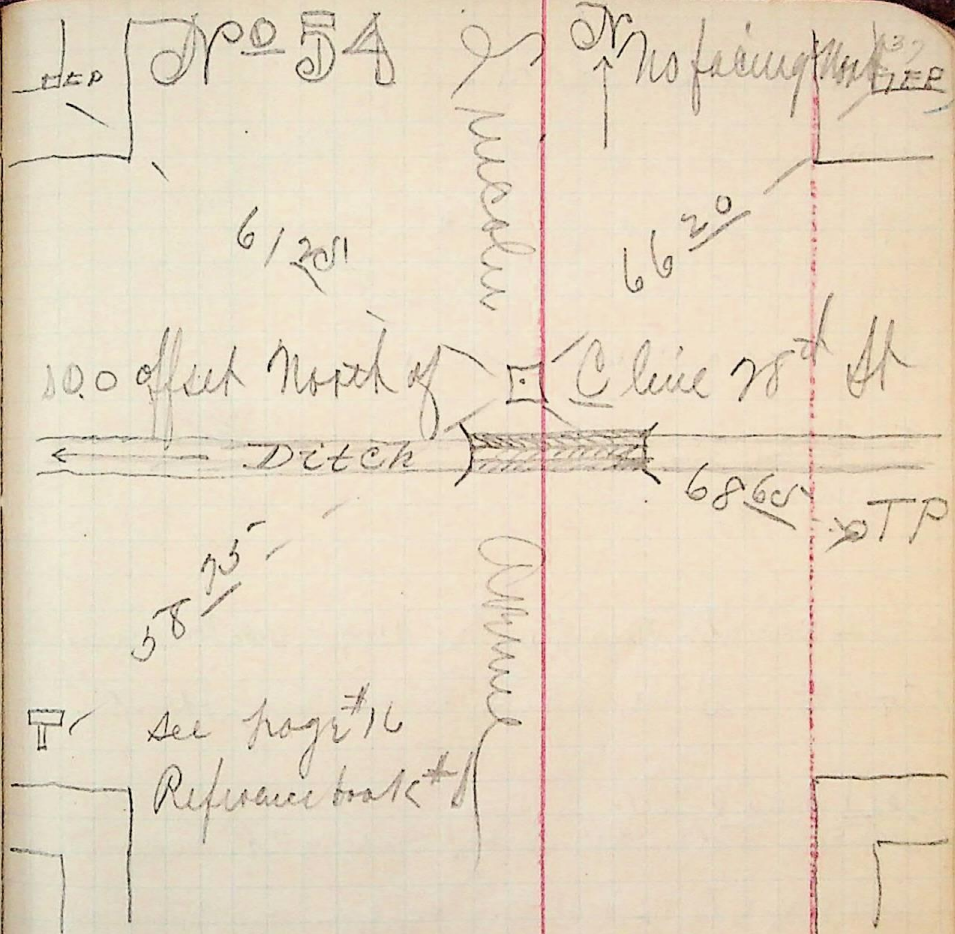 No 54
N
No facing North
37
HEP
HEP
Lincoln
61 25
66 20
10.0 offset North of
C line 28th St
Ditch
68 65
TP
58 75
Avenue
T
see page #16
Reference book #1